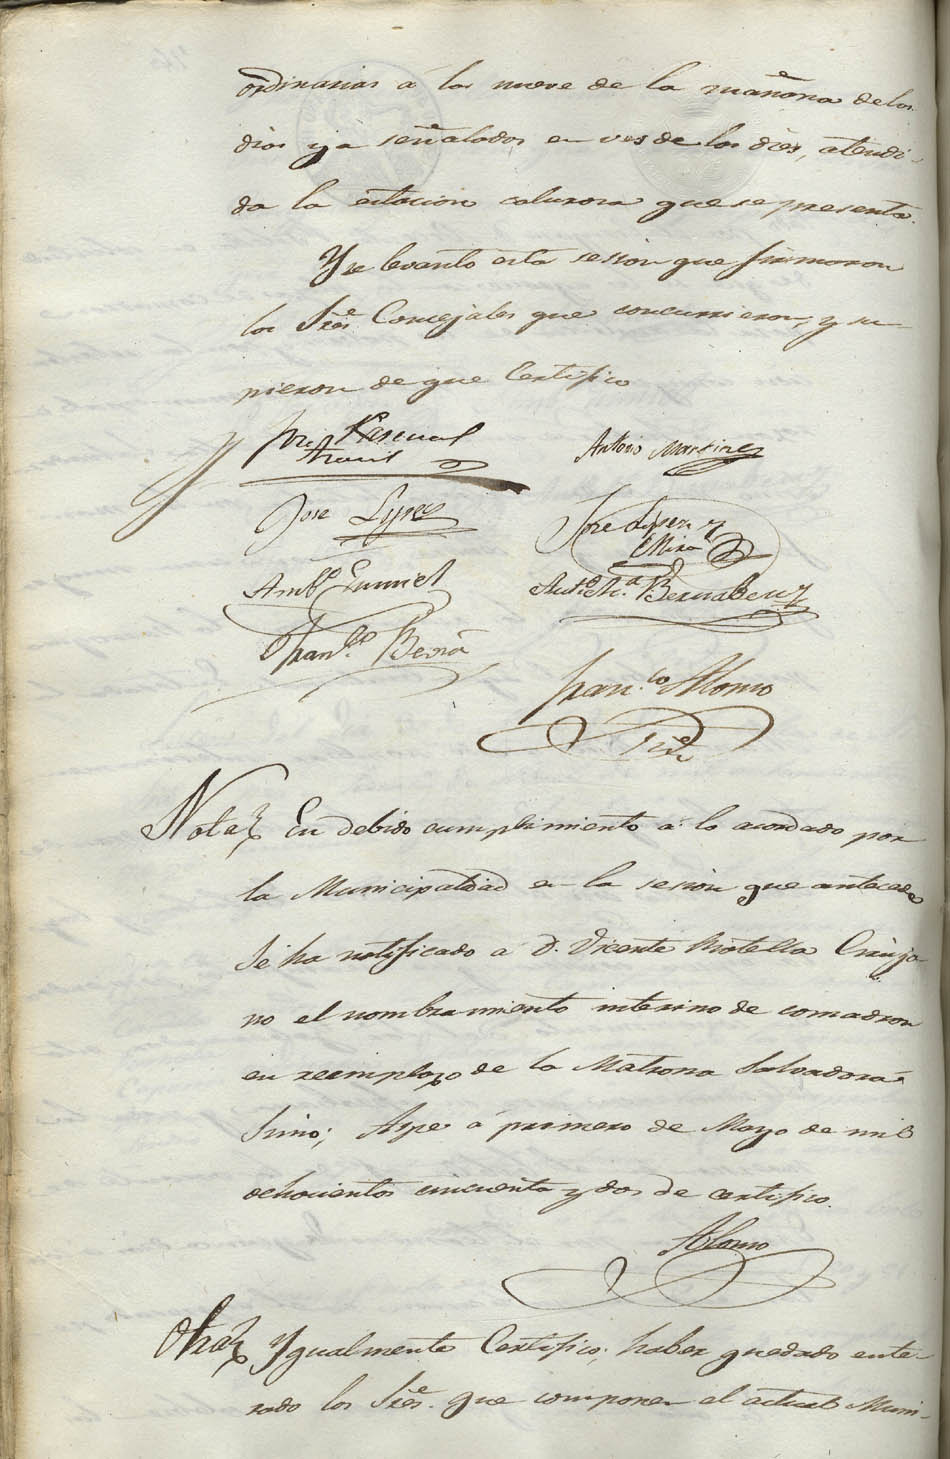 ordinarias á las nueve de la mañana de los
dias ya señalados en ves de las dies, atendi-
da la estacion calurosa que se presenta.
Y se levantó esta sesion que firmaron
los Sres. Concejales que concurrieron, y su-
pieron de que Certifico
Pascual
Antonio Martinez
Jose Lopez
Jose Lopez y
Mira
Amb.o
Ant.o M.a Bernabeu
Fran.co
Fran.co Alonso
Nota En debido cumplimiento á lo acordado por
la Municipalidad en la sesion que antecede
Se ha notificado á D. Vicente Botella Ciruja-
no el nombramiento interino de comadron
en reemplazo de la Matrona Salvadora
Simo; Aspe á primero de Mayo de mil
ochocientos cincuenta y dos de certifico.
Alonso
Otra Ygualmente Certifico; haber quedado ente-
rado los Sres. que componen el actual Muni-